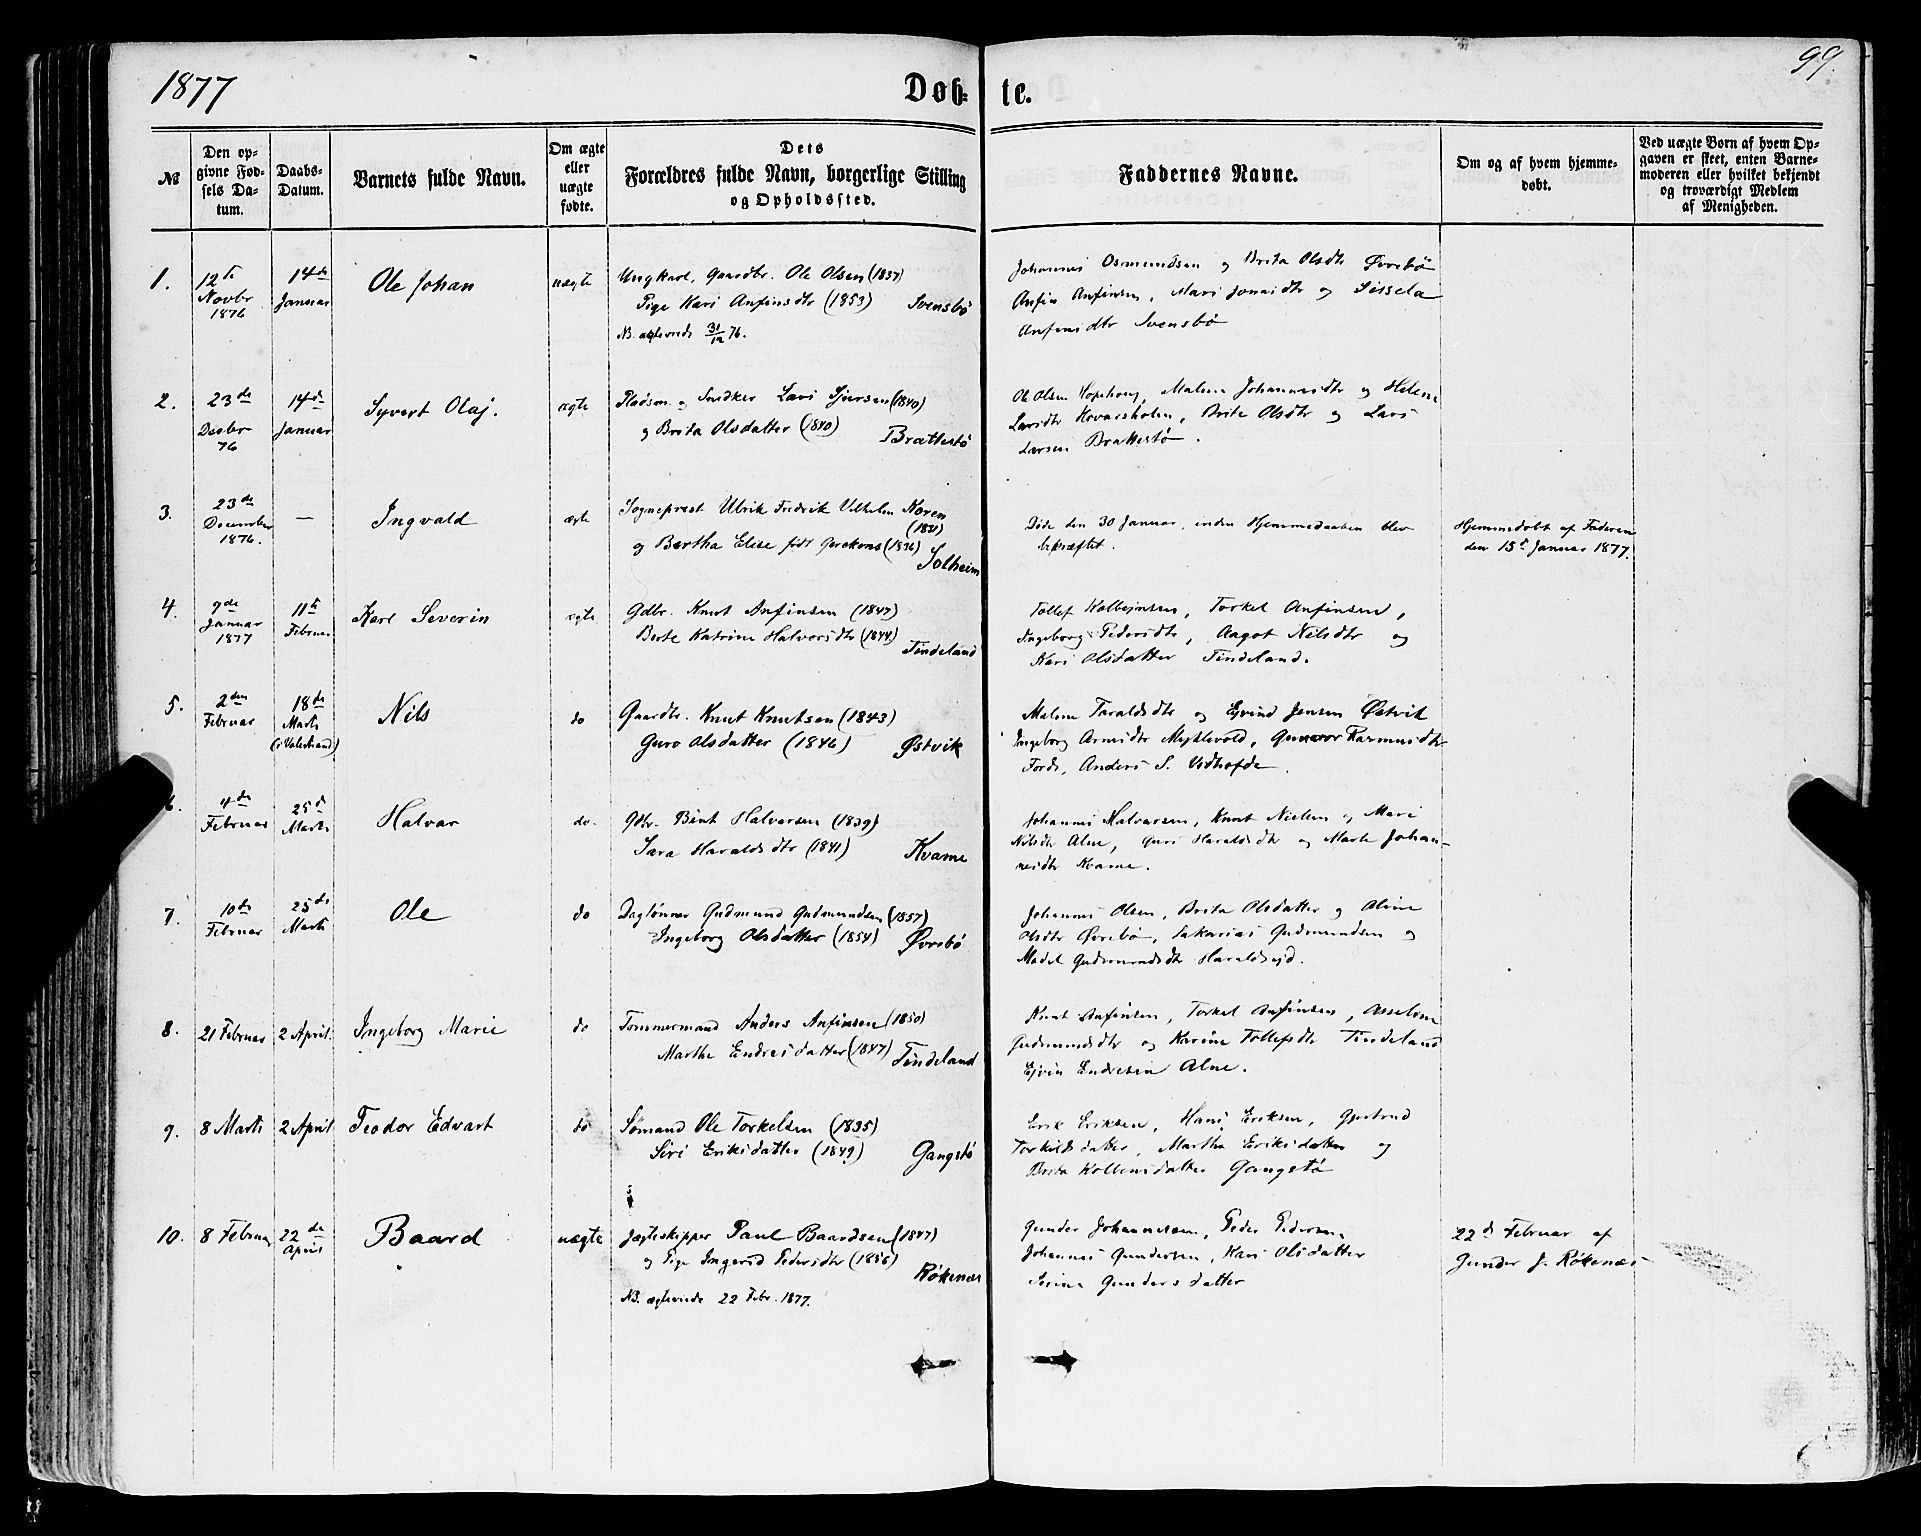 1877
Døb-
te.
99.
№
Den op-
givne Fød-
sels Da-
tum.
Daabs-
Datum.
Barnets fulde Navn.
Om ægte
eller
uægte
fødte.
Dets
Forældres fulde Navn, borgerlige Stilling
og Opholdssted.
Faddernes Navne.
Om og af hvem hjemme-
døbt.
Ved uægte Børn af hvem Op-
gaven er skeet, enten Barne-
moderen eller hvilket bekjendt
og troværdigt Medlem
af Menigheden.
1.
12te
Novbr
1876
14de
Januar
Ole Johan
uægte
Ungkarl, Gaardbr. Ole Olsen (1837)
Pige Kari Anfinsdtr (1853) Svensbø
NB. ægteviede 31/12 76.
Johannes Osmundsen og Brita Olsdtr Øvrebø
Anfin Anfinsen, Mari Jonsdtr og Sissela
Anfinsdtr Svensbø
2.
23de
Decbr
76
14de
Januar
Syvert Olaj.
ægte
Pladsm. og Snedker Lars Sjursen (1840)
og Brita Olsdatter (1840) Brattestø
Ole Olsen Vopehoug, Malena Johannesdtr og Helene
Larsdtr Hovarsholm, Brita Olsdtr og Lars
Larsen Brattestø.
3.
23de
December
1876.
—
Ingvald
ægte
Sogneprest Ulrik Fredrik Vilhelm Koren
(1821)
og Bertha Elise født Gerckens (1836)
Solheim
Døde den 30 Januar, inden Hjemmedaaben blev
bekræftet.
Hjemmedøbt af Faderen
den 15de Januar 1877.
4.
9de
Januar
1877
11te
Februar
Karl Severin
ægte
Gdbr. Knut Anfinsen (1847)
Berte Katrine Halvorsdtr (1844)
Tindeland
Tollef Kolbejnsen, Torkel Anfinsen,
Ingeborg Pedersdtr, Aagot Nilsdtr og
Kari Olsdatter Tindeland.
5.
2den
Februar
18de
Marts
(i Valestrand)
Nils
do
Gaardbr. Knut Knutsen (1843)
Guro Olsdatter (1846) Østvik
Malene Taraldsdtr og Ejvind Jensen Østvik
Ingeborg Arnesdtr Myklevold, Gunvor Rasmusdtr
Førde, Anders S. Vedhofde.
6.
4de
Februar
25de
Marts
Halvar
do.
Gdbr. Bent Halvorsen (1839)
Sara Haraldsdtr (1841) Kvame
Johannes Halvorsen, Knut Nielsen og Mari
Nilsdtr Alne, Guri Haraldsdtr og Marte Johan-
nesdtr Kvame.
7.
10de
Februar
25de
Marts
Ole
do
Daglønner Gudmund Gudmundsen (1857)
Ingeborg Olsdatter (1854) Øvrebø
Johannes Olsen, Brita Olsdatter og Aline
Olsdtr Øvrebø, Sakarias Gudmundsen og
Madel Gudmundsdtr Haraldsejd.
8.
21 Februar
2 April
Ingeborg Marie
do
Tømmermand Anders Anfinsen (1850)
Marthe Endresdatter (1847) Tindeland
Knut Anfinsen, Torkel Anfinsen, Asseline
Gudmundsdtr og Karine Tollefsdtr Tindeland
Ejvin Endresen Alne.
9.
8 Marts
2 April
Teodor Edvart
do
Sømand Ole Torkelsen (1835)
Siri Eriksdatter (1849) Gangstø
Erik Eriksen, Hans Eriksen, Gjertrud
Torkildsdatter, Martha Eriksdatter og
Brita Kolbensdatter Gangstø
10.
8 Februar
22de
April
Baard
uægte
Jagteskipper Paul Baardsen (1847)
og Pige Ingerid Pedersdtr (1856)
Røkenæs
NB. ægteviede 22 Febr. 1877.
Gunder Johannesen, Peder Pedersen,
Johannes Gundersen, Kari Olsdatter
Serina Gundersdatter
22de Februar af
Gunder J. Røkenæs